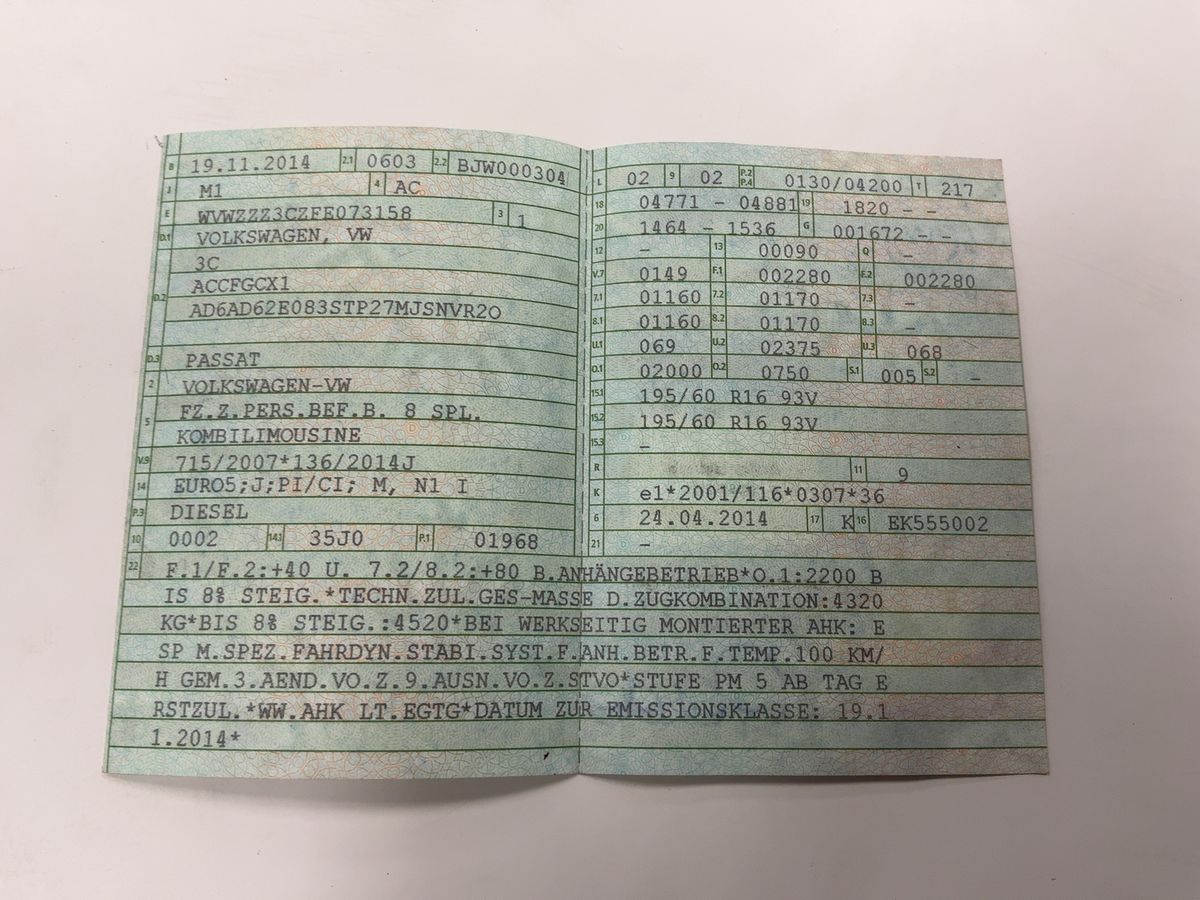 B 19.11.2014 2.1 0603 2.2 BJW000304
J M1 4 AC
E WVWZZZ3CZFE073158 3 1
D.1 VOLKSWAGEN, VW
3C
D.2 ACCFGCX1
AD6AD62E083STP27MJSNVR2O
D.3 PASSAT
2 VOLKSWAGEN-VW
5 FZ.Z.PERS.BEF.B. 8 SPL.
KOMBILIMOUSINE
V.9 715/2007*136/2014J
14 EURO5;J;PI/CI; M, N1 I
P.3 DIESEL
10 0002 14.1 35J0 P.1 01968
L 02 9 02 P.2 P.4 0130/04200 T 217
18 04771 - 04881 19 1820 - -
20 1464 - 1536 G 001672 - -
12 - 13 00090 Q -
V.7 0149 F.1 002280 F.2 002280
7.1 01160 7.2 01170 7.3 -
8.1 01160 8.2 01170 8.3 -
U.1 069 U.2 02375 U.3 068
O.1 02000 O.2 0750 S.1 005 S.2 -
15.1 195/60 R16 93V
15.2 195/60 R16 93V
15.3 -
R 11 9
K e1*2001/116*0307*36
6 24.04.2014 17 K 16 EK555002
21 -
22 F.1/F.2:+40 U. 7.2/8.2:+80 B.ANHÄNGEBETRIEB*O.1:2200 B
IS 8% STEIG.*TECHN.ZUL.GES-MASSE D.ZUGKOMBINATION:4320
KG*BIS 8% STEIG.:4520*BEI WERKSEITIG MONTIERTER AHK: E
SP M.SPEZ.FAHRDYN.STABI.SYST.F.ANH.BETR.F.TEMP.100 KM/
H GEM.3.AEND.VO.Z.9.AUSN.VO.Z.STVO*STUFE PM 5 AB TAG E
RSTZUL.*WW.AHK LT.EGTG*DATUM ZUR EMISSIONSKLASSE: 19.1
1.2014*